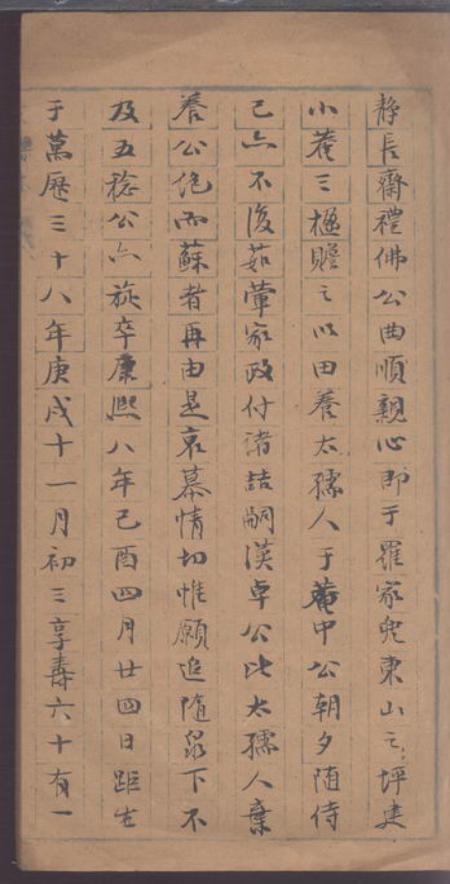 静長齋禮佛公曲順親心即于羅家坣東山之坪建
小菴三楹贍之以田養太孺人于菴中公朝夕随侍
己亦不復茹葷家政付諸喆嗣漢卓公比太孺人棄
養公絶而蘇者再由是哀慕情切惟願追隨泉下不
及五稔公亦旋卒康熙八年己酉四月廿四日距生
于萬歷三十八年庚戌十一月初三享壽六十有一